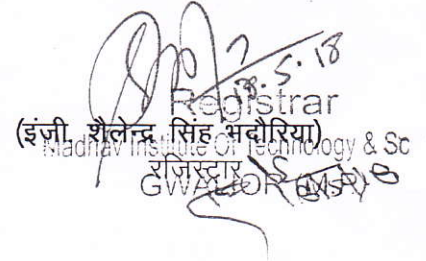 18.5.18
Registrar
(इंजी. शैलेन्द्र सिंह भदौरिया)
Madhav Institute Of Technology & Sc
रजिस्ट्रार
GWALIOR (M.P.)